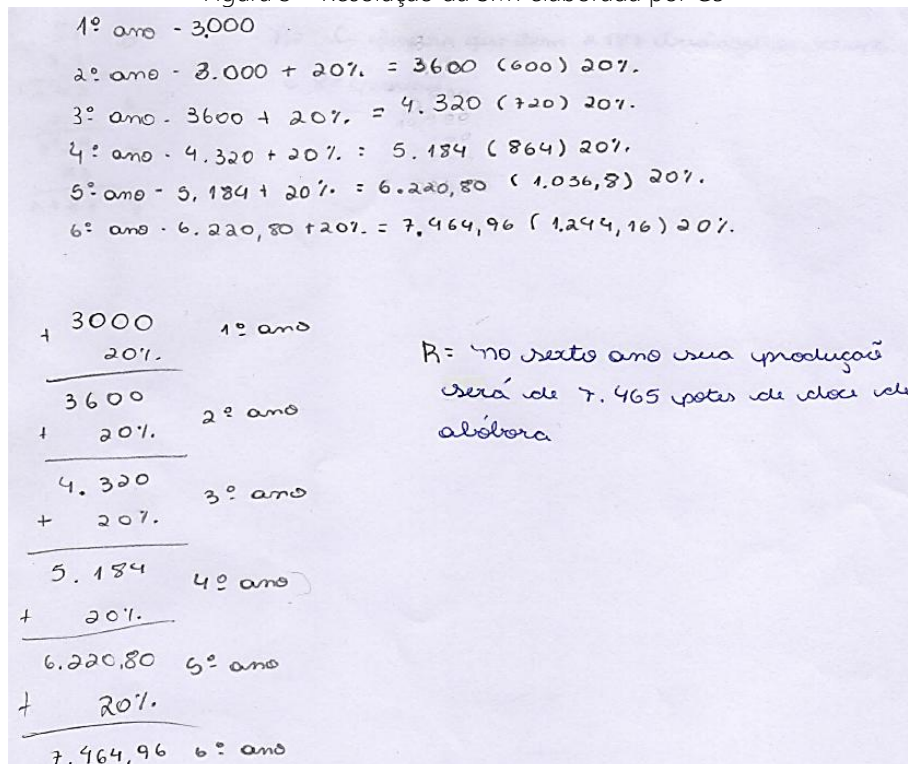 1º ano - 3.000
2º ano - 3.000 + 20% = 3600 (600) 20%.
3º ano - 3600 + 20% = 4.320 (720) 20%.
4º ano - 4.320 + 20% = 5.184 (864) 20%.
5º ano - 5.184 + 20% = 6.220,80 (1.036,8) 20%.
6º ano - 6.220,80 + 20% = 7.464,96 (1.244,16) 20%.
+ 3000 1º ano
20%
3600 2º ano
+ 20%
4.320 3º ano
+ 20%
5.184 4º ano
+ 20%
6.220,80 5º ano
+ 20%
7.464,96 6º ano
R= no sexto ano sua produção
será de 7.465 potes de doce de
abóbora